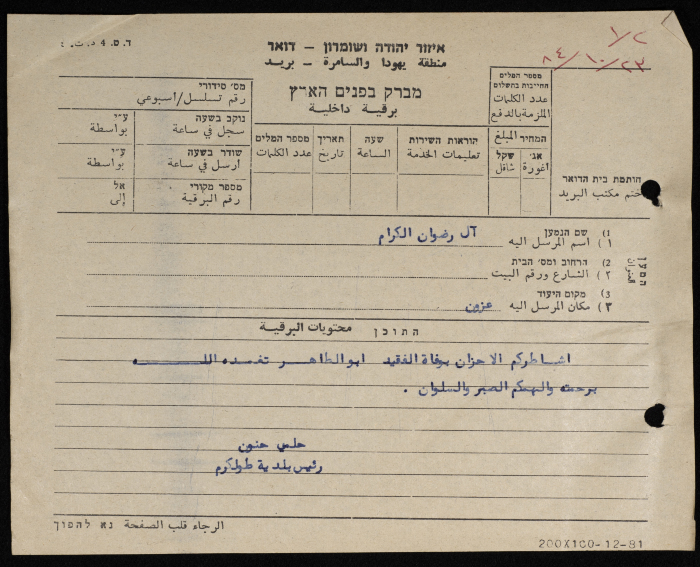 ד.ס. 4 ד.ת.
איזור יהודה ושומרון – דואר
منطقة يهودا والسامرة – بريد
١/٢
٨٤/١٠/٢٣
מברק בפנים הארץ
برقية داخلية
מס׳ סידורי
رقم تسلسل/اسبوعي
נוקב בשעה ע״י
سجل في ساعة بواسطة
שודר בשעה ע״י
ارسل في ساعة بواسطة
מספר מקורי אל
رقم البرقية إلى
מספר המלים תאריך שעה הוראות השירות
عدد الكلمات تاريخ الساعة تعليمات الخدمة
מספר המלים
החייבות בתשלום
عدد الكلمات
الملزمة بالدفع
המחיר المبلغ
שקל אג׳
شاقل اغورة
חותמת בית הדואר
ختم مكتب البريد
המען
العنوان
1) שם הנמען
١) اسم المرسل اليه آل رضوان الكرام
2) הרחוב ומס׳ הבית
٢) الشارع ورقم البيت
3) מקום היעוד
٣) مكان المرسل اليه عزون
התוכן محتويات البرقية
اشاطركم الاحزان بوفاة الفقيد ابو الطاهر تغمده الله
برحمته والهمكم الصبر والسلوان .
حلمي حنون
رئيس بلدية طولكرم
الرجاء قلب الصفحة נא להפוך
200X100-12-81